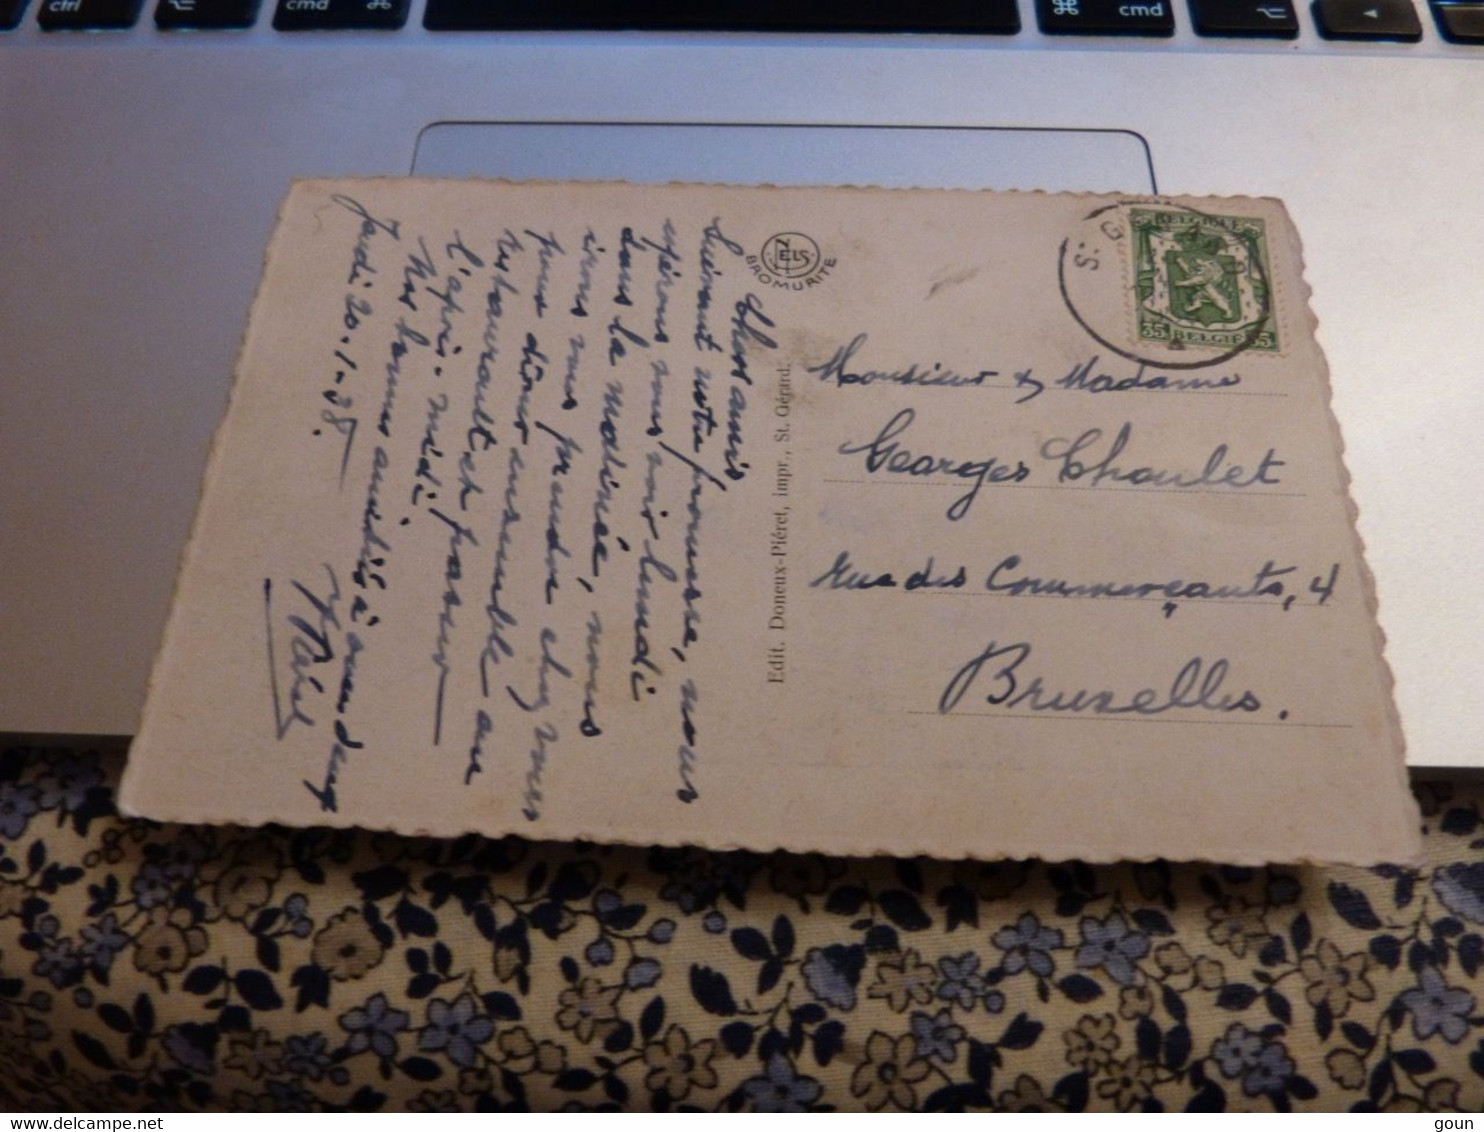 ctrl
cmd
cmd
BELGIQUE
35
BELGIË
35
S. G
NELS
BROMURITE
Edit. Doneux-Piéret, impr., St. Gérard.
Monsieur & Madame
Georges Choulet
Rue des Commerçants, 4
Bruxelles.
Chers amis
Suivant notre promesse, nous
espérons vous voir lundi
dans la matinée, nous
irons vous prendre chez vous
pour dîner ensemble au
restaurant et passer
l'après-midi.
Nos bonnes amitiés à vous deux
Jeudi 20-1-38